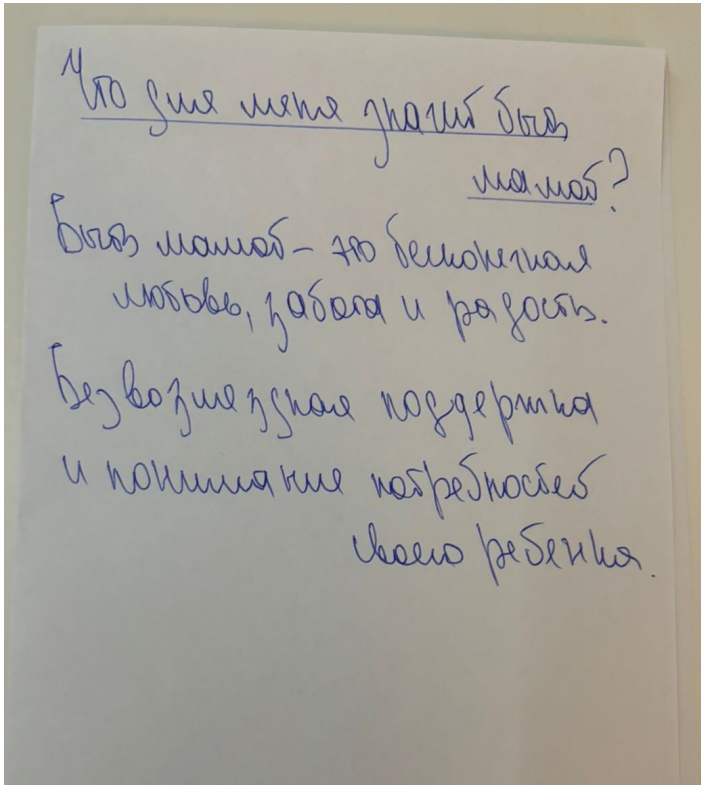 Что для меня значит быть
мамой?
Быть мамой – это бесконечная
любовь, забота и радость.
Безвозмездная поддержка
и понимание потребностей
своего ребенка.